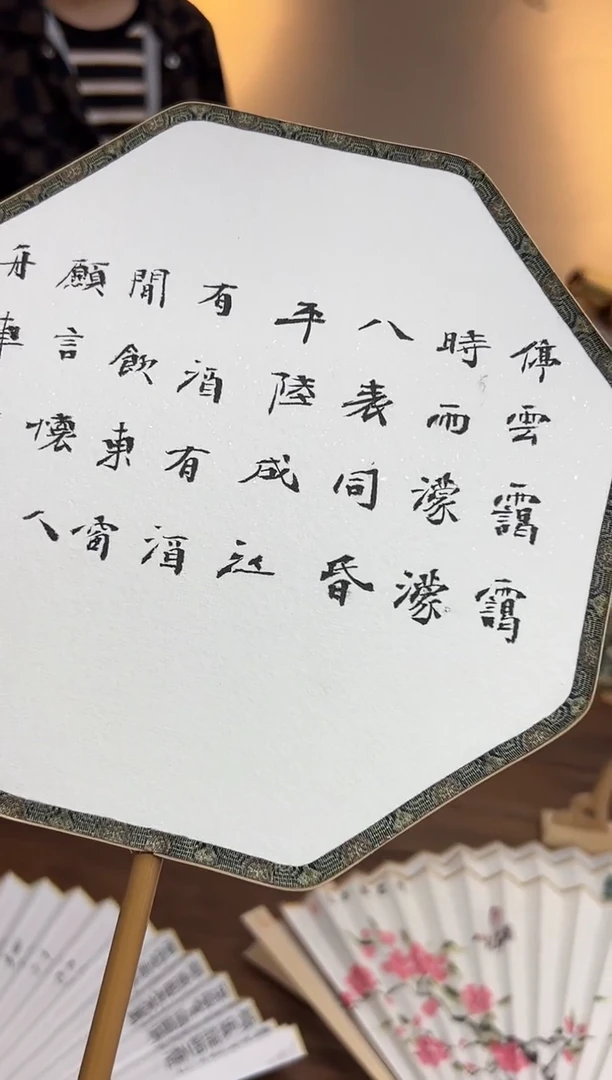 停雲靄靄
時雨濛濛
八表同昏
平陸成江
有酒有酒
閒飲東窗
願言懷人
舟車